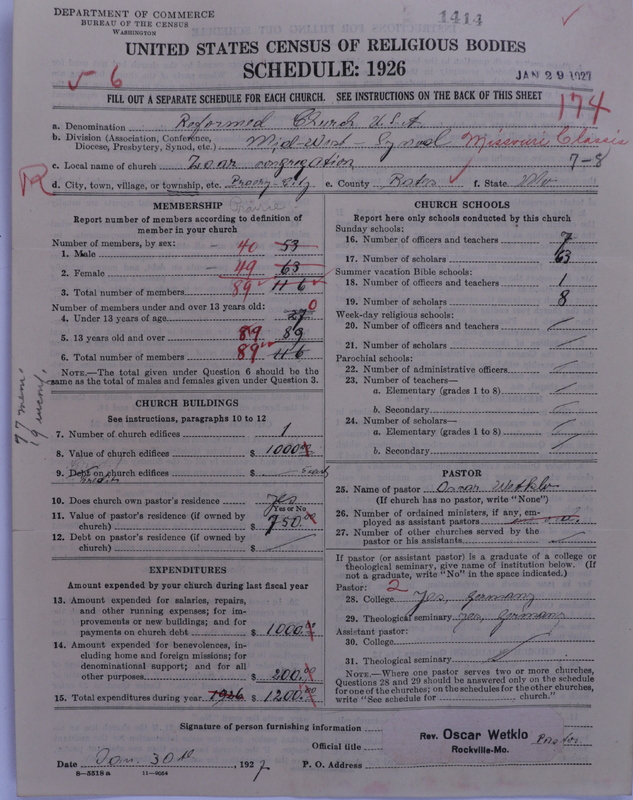 DEPARTMENT OF COMMERCE
BUREAU OF THE CENSUS
WASHINGTON
1414
UNITED STATES CENSUS OF RELIGIOUS BODIES
SCHEDULE: 1926
JAN 29 1927
6
FILL OUT A SEPARATE SCHEDULE FOR EACH CHURCH. SEE INSTRUCTIONS ON THE BACK OF THIS SHEET
174
a. Denomination Reformed Church U.S.A
b. Division (Association, Conference, Diocese, Presbytery, Synod, etc.) Mid-West - Synod Missouri Classis
c. Local name of church Zoar congregation 7-8
R
d. City, town, village, or township, etc. City e. County Bates f. State Mo
Prairie
MEMBERSHIP
Report number of members according to definition of
member in your church
Number of members, by sex:
1. Male 40 53
2. Female 49 63
3. Total number of members 89 116
Number of members under and over 13 years old:
4. Under 13 years of age 27 0
5. 13 years old and over 89 89
6. Total number of members 89 116
NOTE.—The total given under Question 6 should be the
same as the total of males and females given under Question 3.
CHURCH BUILDINGS
See instructions, paragraphs 10 to 12
7. Number of church edifices 1
8. Value of church edifices $ 1000.
9. Debt on church edifices $
10. Does church own pastor's residence yes
Yes or No
11. Value of pastor's residence (if owned by
church) $ 750.
12. Debt on pastor's residence (if owned by
church) $
EXPENDITURES
Amount expended by your church during last fiscal year
13. Amount expended for salaries, repairs,
and other running expenses; for im-
provements or new buildings; and for
payments on church debt $ 1000.
14. Amount expended for benevolences, in-
cluding home and foreign missions; for
denominational support; and for all
other purposes $ 200.00
15. Total expenditures during year 1926 $ 1200.00
CHURCH SCHOOLS
Report here only schools conducted by this church
Sunday schools:
16. Number of officers and teachers 7
17. Number of scholars 63
Summer vacation Bible schools:
18. Number of officers and teachers 1
19. Number of scholars 8
Week-day religious schools:
20. Number of officers and teachers
21. Number of scholars
Parochial schools:
22. Number of administrative officers
23. Number of teachers—
a. Elementary (grades 1 to 8)
b. Secondary
24. Number of scholars—
a. Elementary (grades 1 to 8)
b. Secondary
PASTOR
25. Name of pastor Oscar Wetklo
(If church has no pastor, write "None")
26. Number of ordained ministers, if any, em-
ployed as assistant pastors
27. Number of other churches served by the
pastor or his assistants
If pastor (or assistant pastor) is a graduate of a college or
theological seminary, give name of institution below. (If
not a graduate, write "No" in the space indicated.)
Pastor: 2
28. College Yes, Germany
29. Theological seminary Yes, Germany
Assistant pastor:
30. College
31. Theological seminary
NOTE.—Where one pastor serves two or more churches,
Questions 28 and 29 should be answered only on the schedule
for one of the churches; on the schedules for the other churches,
write "See schedule for church."
Signature of person furnishing information
Rev. Oscar Wetklo
Official title Pastor
Rockville-Mo.
Date Jan. 30th, 1927 P. O. Address
8—5518 a 11—9064